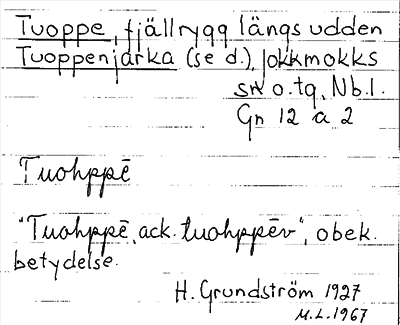 Tuoppe, fjällrygg längs udden
Tuoppenjarka (se d.), Jokkmokks
sn o. tg, Nb. l.
Gn 12 a 2
Tuohppē
"Tuohppē, ack. tuohppēv", obek.
betydelse.
H. Grundström 1927
M.L. 1967